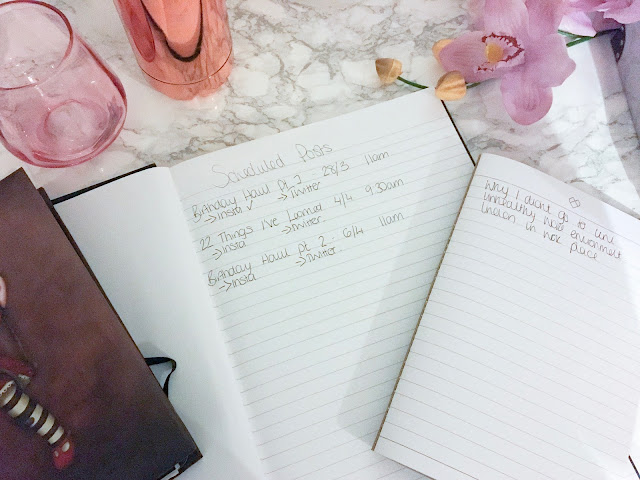 Scheduled Posts
Birthday Haul Pt 1 : 28/3 11am
→Insta ✓ →Twitter
22 Things I've Learned 4/4 9.30am
→Insta →Twitter
Birthday Haul pt 2 : 6/4 11am
→Insta →Twitter
Why I didnt go to uni
unhealthy environment
in place